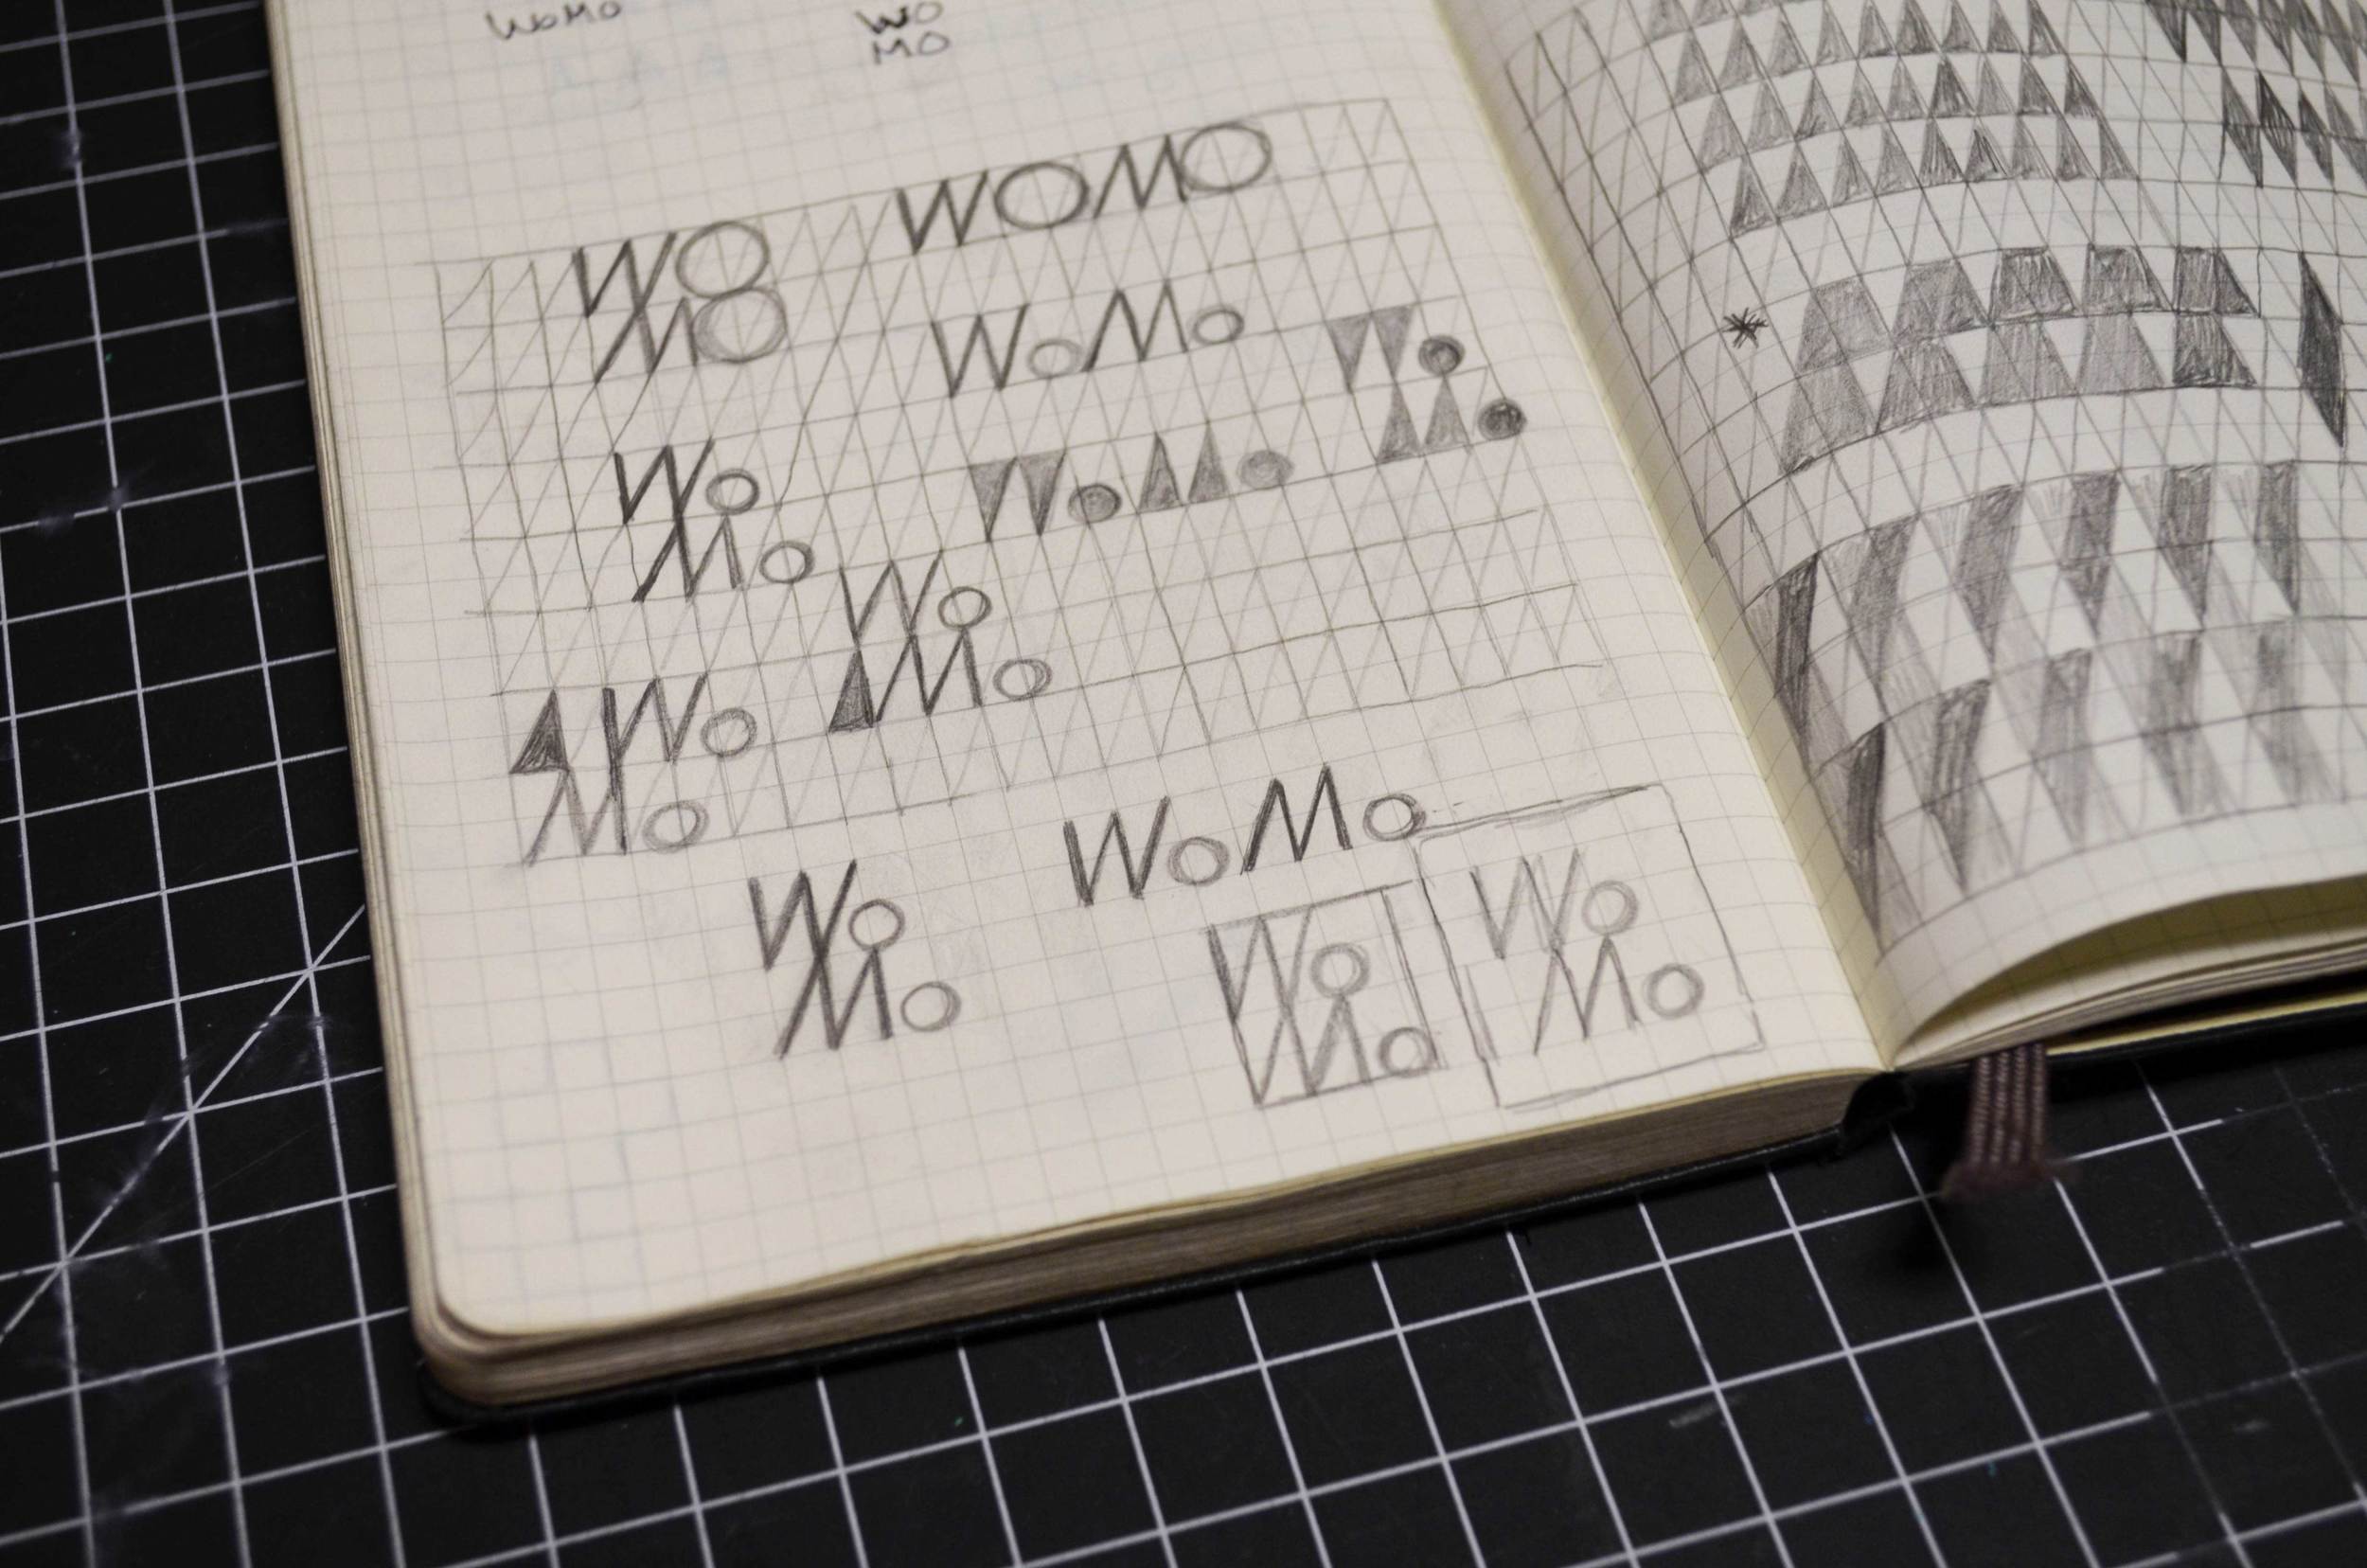 WoMo
WO
MO
WO
MO
WOMO
WoMo
Wo
Mo
Wo
Mo
WoMo
Wo
Mo
Wo
Mo
WoMo
Wo
Mo
Wo
Mo
Wo
Mo
*